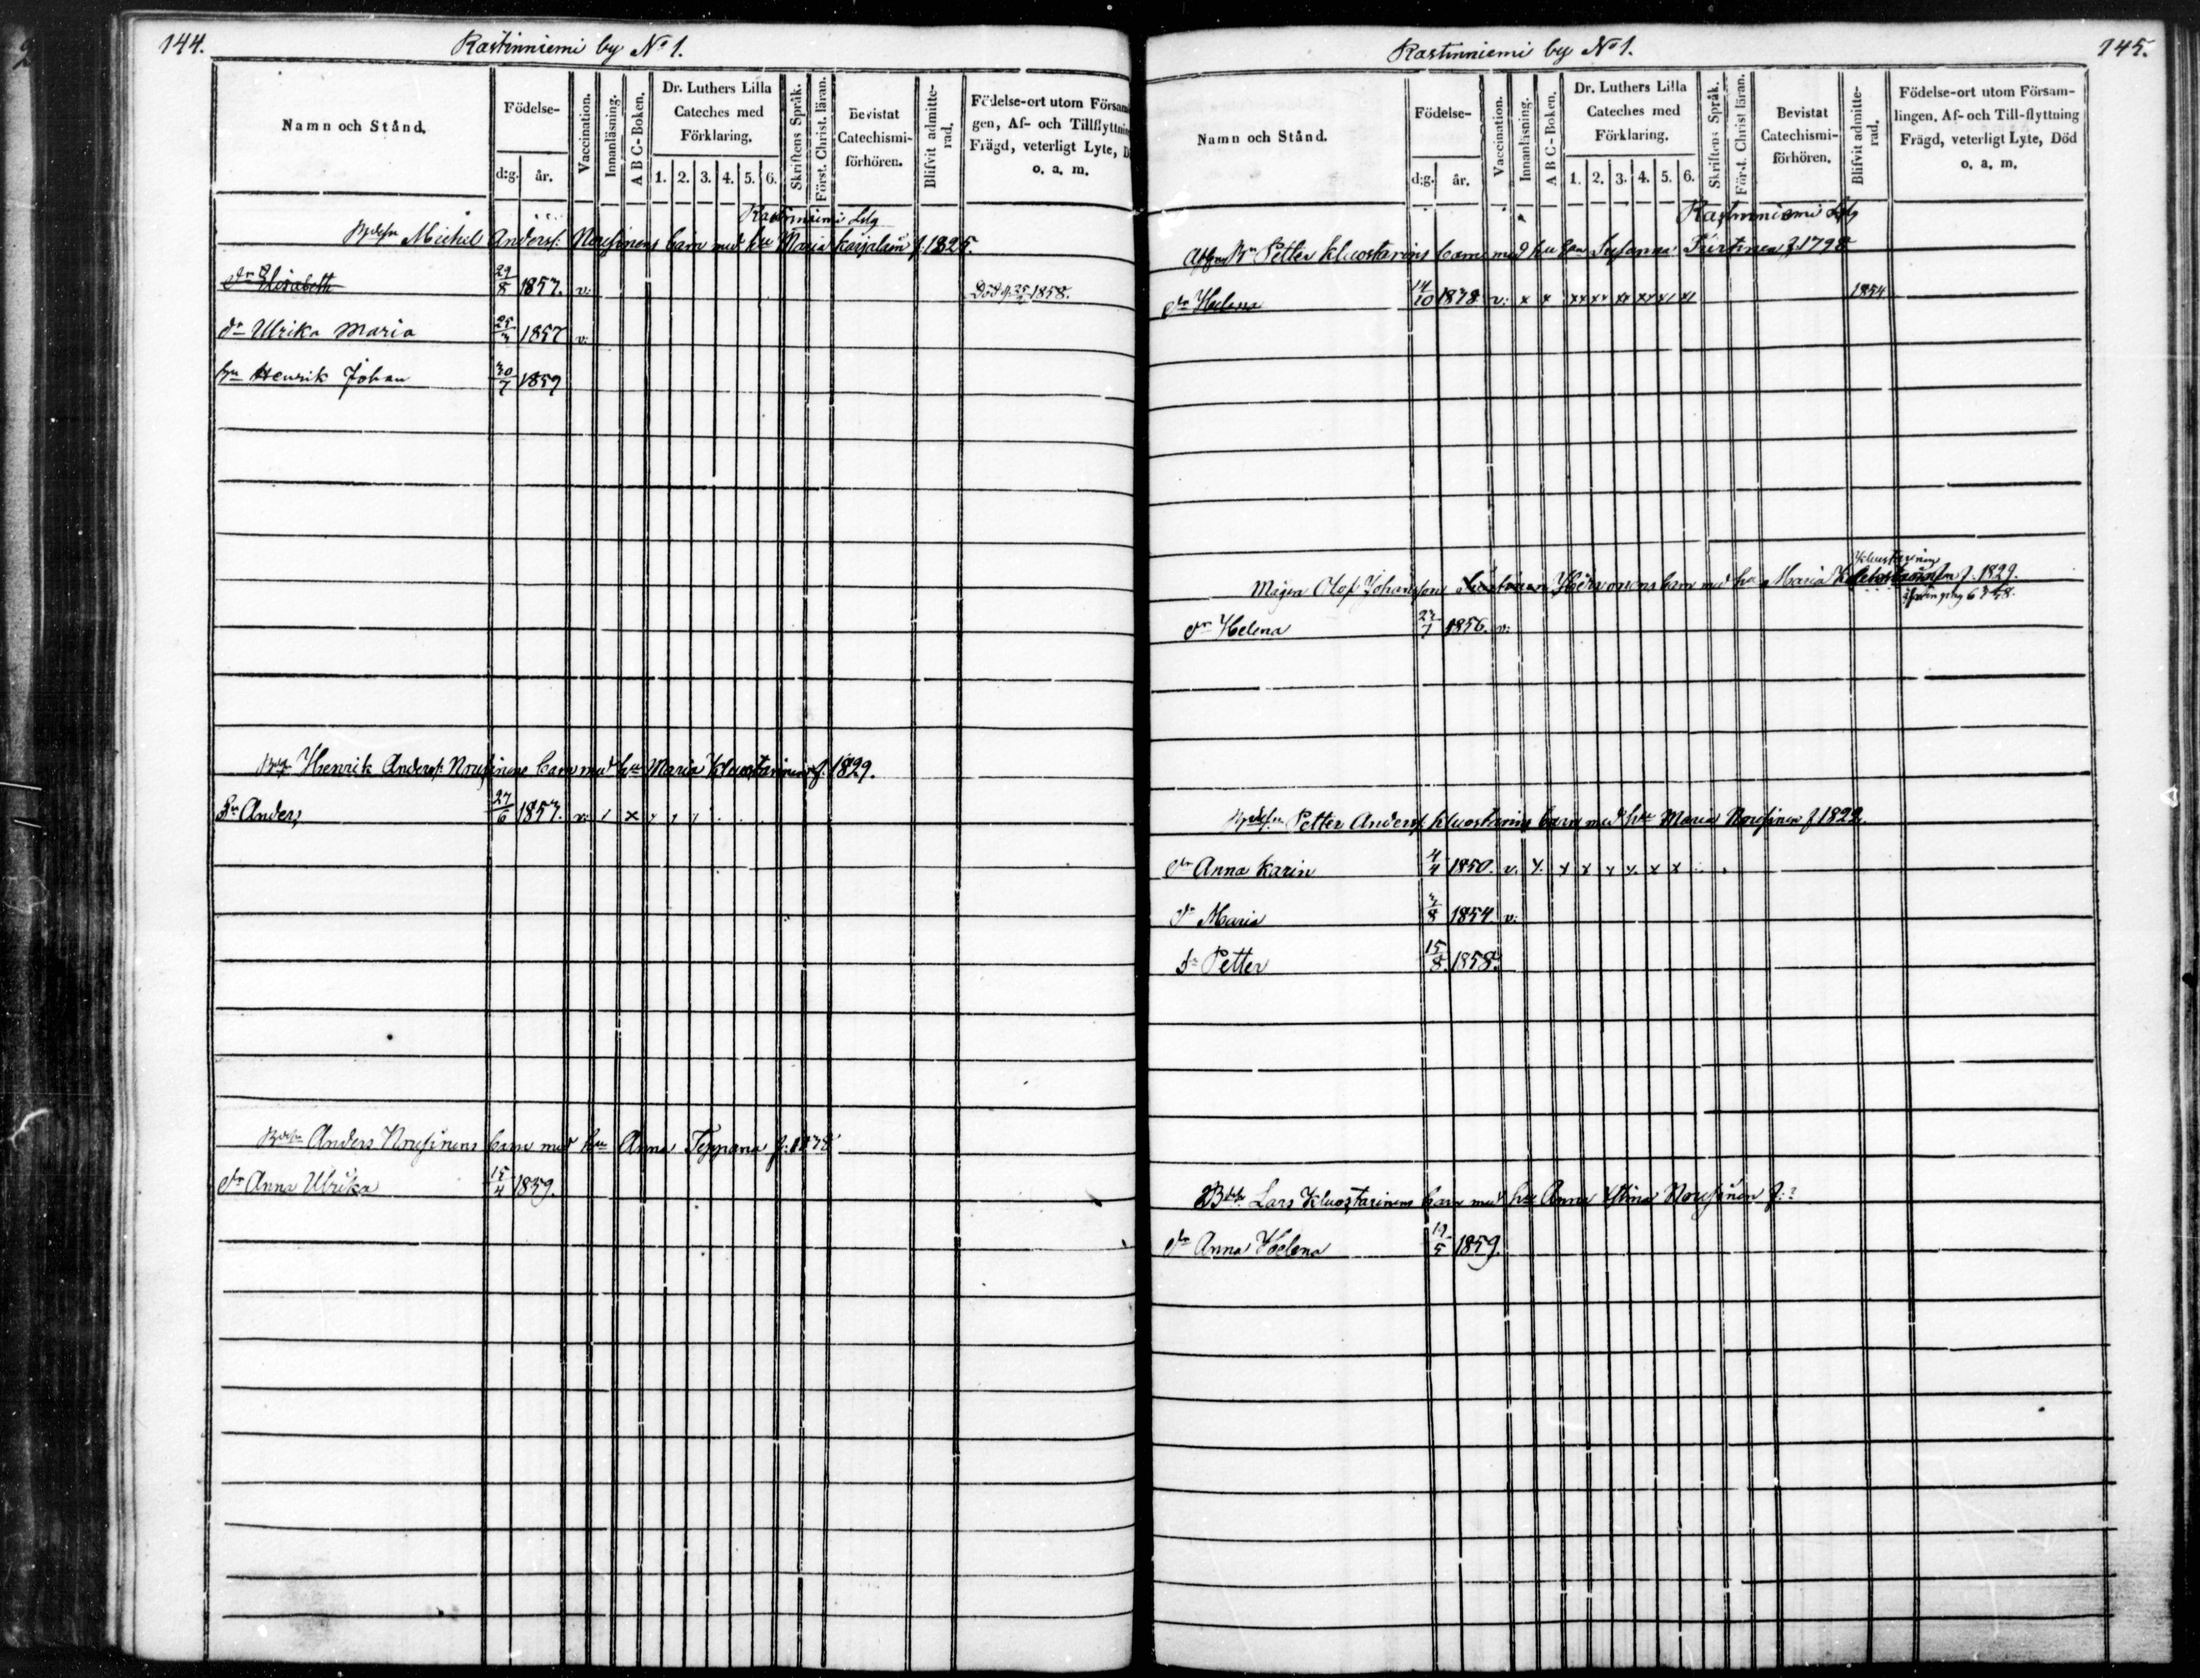 144.
Rastinniemi by No 1.
Namn och Stånd.
Födelse-
d:g. år.
Vaccination.
Innanläsning.
A B C-Boken.
Dr. Luthers Lilla
Cateches med
Förklaring.
1. 2. 3. 4. 5. 6.
Skriftens Språk.
Först. Christ. läran.
Bevistat
Catechismi-
förhören.
Blifvit admitte-
rad.
Födelse-ort utom Försam
gen, Af- och Tillflyttning
Frägd, veterligt Lyte, D
o. a. m.
Michel Anders: Nousinens barn med hu Maria Karjalain f. 1825.
dr Elisabeth 29/8 1857. v: Död 1858.
dr Ulrika Maria 25/3 1857 v:
sn Henrik Johan 30/7 1859
Henrik Anders: Nousinens barn med hu Maria Kluostarinen f. 1829.
Sn Anders 27/6 1853. v: / x
Anders Nousinens barn med hu Anna Teppana f:
dr Anna Ulrika 15/4 1859.
Rastinniemi by No 1.
145.
Namn och Stånd.
Födelse-
d:g. år.
Vaccination.
Innanläsning.
A B C-Boken.
Dr. Luthers Lilla
Cateches med
Förklaring.
1. 2. 3. 4. 5. 6.
Skriftens Språk.
Först. Christ läran.
Bevistat
Catechismi-
förhören.
Blifvit admitte-
rad.
Födelse-ort utom Försam-
lingen, Af- och Till-flyttning
Frägd, veterligt Lyte, Död
o. a. m.
Petter Kluostarins barn med hu Susanna f. 1798
dr Helena 14/10 1838 v: x x xx xx xx xx x/ x/ 1854
Kluostarinen
Mågen Olof Johansson barn med hu Maria f. 1829.
dr Helena 23/7 1856. v:
Petter Anders: Kluostarins barn med hu Maria Nousinen f 1822.
dr Anna Karin 4/4 1850. v. x. x x x x. x x
dr Maria 3/8 1854 v:
Sn Petter 15/8. 1858.
Lars Kluostarinens barn med hu Anna Stina Nousinen f:?
dr Anna Helena 19/5 1859.